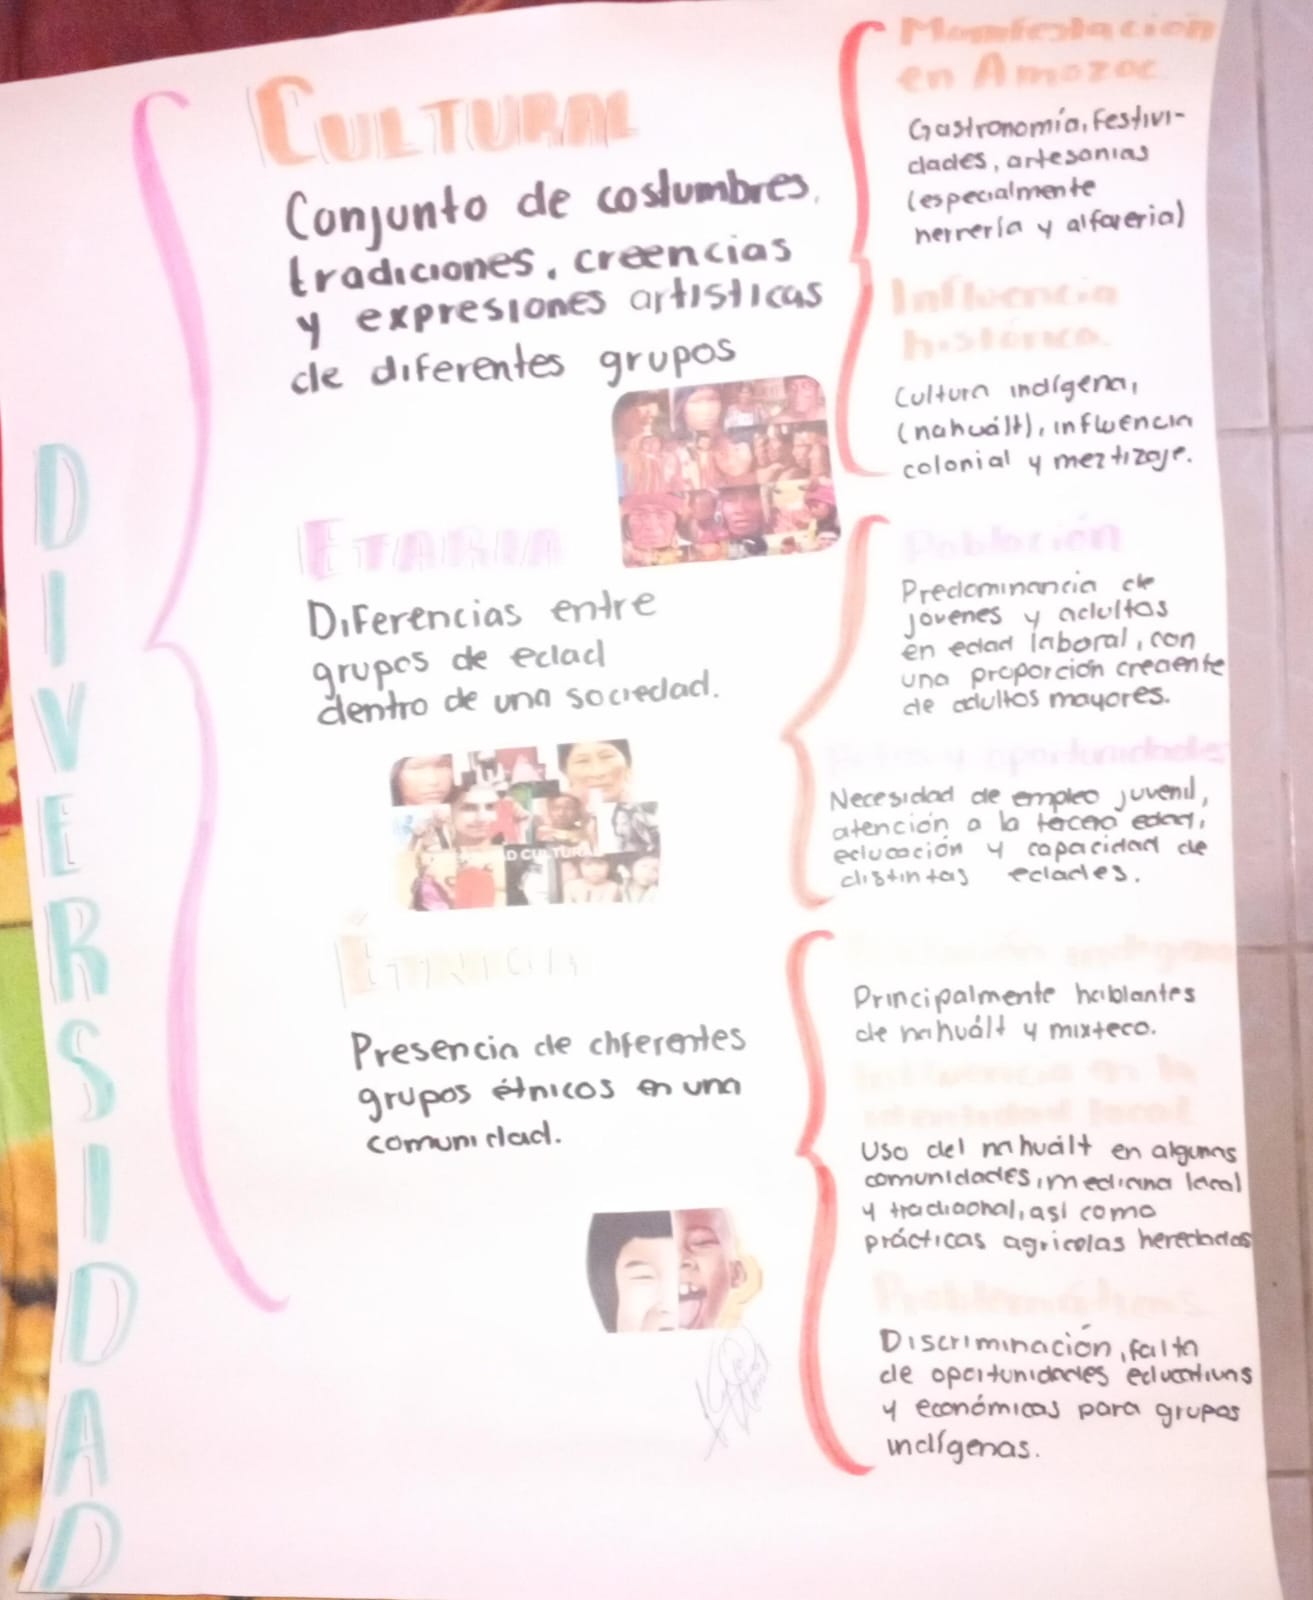 DIVERSIDAD
CULTURAL
Conjunto de costumbres,
tradiciones, creencias
y expresiones artísticas
de diferentes grupos
Manifestación
en Amozoc
Gastronomía, Festivi-
dades, artesanias
(especialmente
herrería y alfarería)
Influencia
histórica.
Cultura indígena,
(nahuált), influencia
colonial y meztizaje.
ETARIA
Diferencias entre
grupos de edad
dentro de una sociedad.
D CULTURAL
Población
Predominancia de
jóvenes y adultos
en edad laboral, con
una proporción creciente
de adultos mayores.
Retos y oportunidades
Necesidad de empleo juvenil,
atención a la tercera edad,
educación y capacidad de
distintas edades.
ÉTNICA
Presencia de diferentes
grupos étnicos en una
comunidad.
Población indígena
Principalmente hablantes
de nahuált y mixteco.
Influencia en la
identidad local
Uso del nahuált en algunas
comunidades, medicina local
y tradicional, así como
prácticas agrícolas heredadas
Problemáticas
Discriminación, falta
de oportunidades educativas
y económicas para grupos
indígenas.